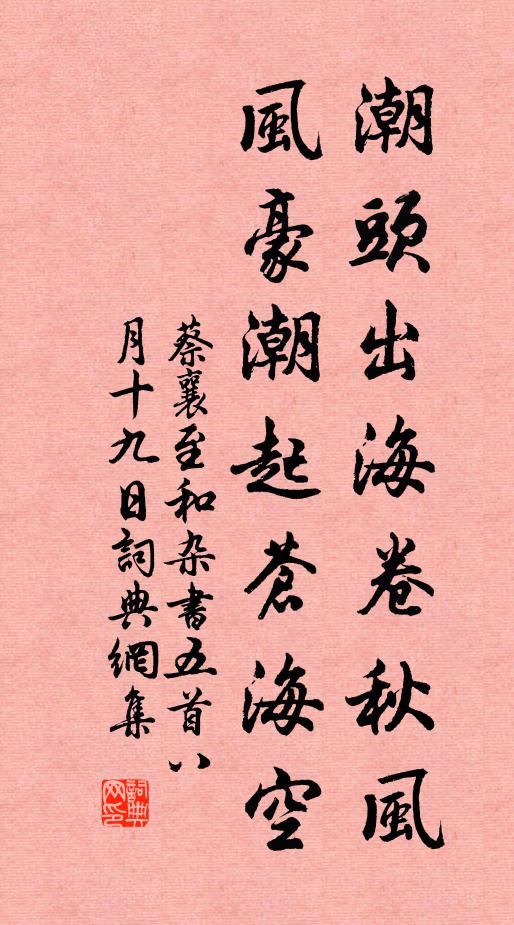 潮頭出海卷秋風
風豪潮起蒼海空
蔡襄至和杂書五首八
月十九日詞典網集
詞典網印